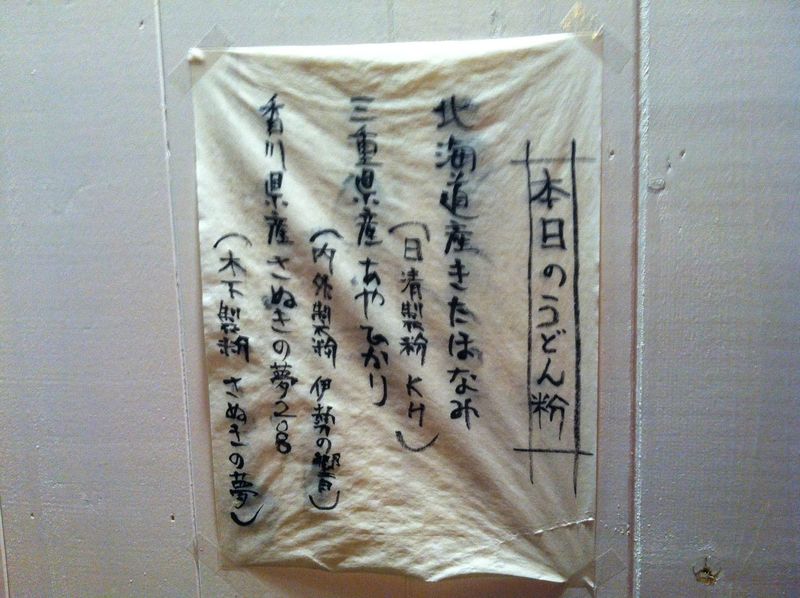 本日のうどん粉
北海道産きたほなみ
(日清製粉 KH)
三重県産あやひかり
(内外製粉 伊勢の響)
香川県産さぬきの夢208
(木下製粉 さぬきの夢)